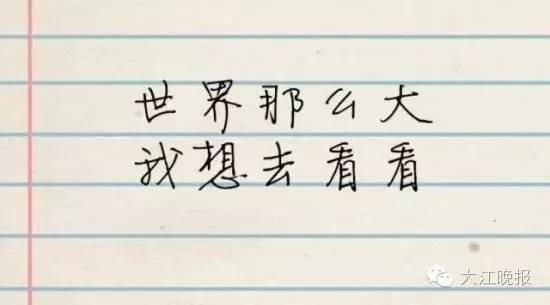 世界那么大
我想去看看
大江晚报